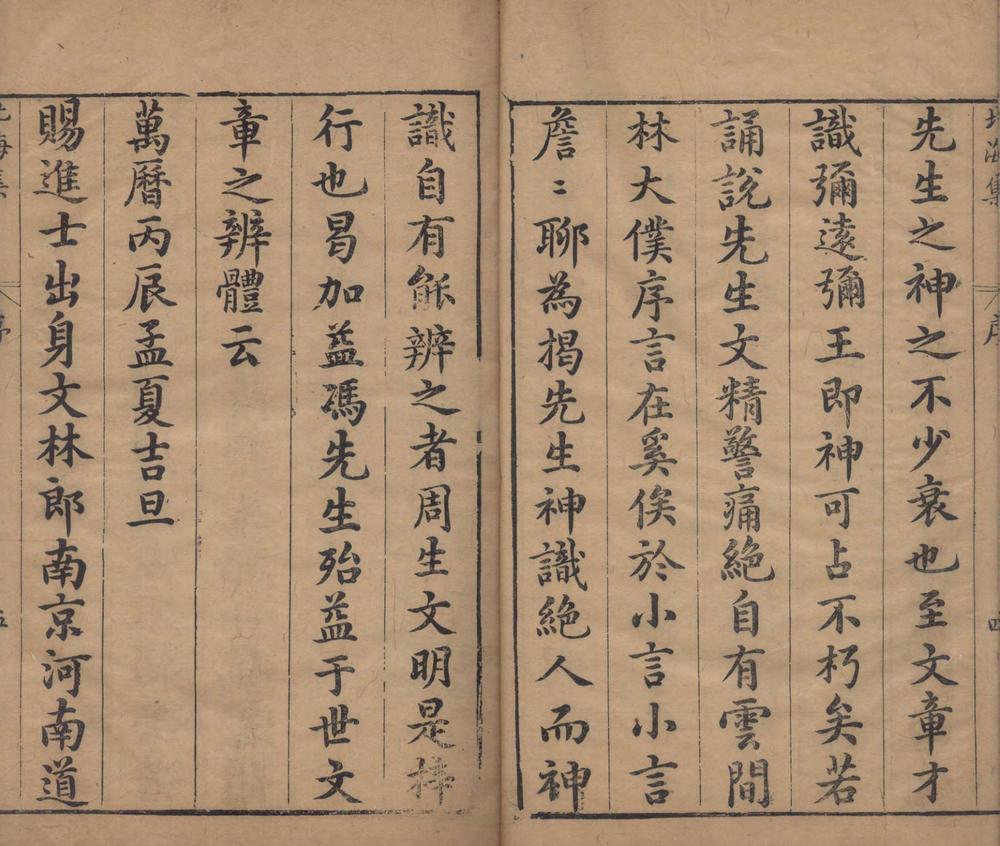 先生之神之不少衰也至文章才
識彌遠彌王即神可占不朽矣若
誦說先生文精警痛絕自有雲間
林大僕序言在奚俟於小言小言
詹〻聊為揭先生神識絕人而神
識自有能辨之者周生文明是梓
行也曷加益馮先生殆益于世文
章之辨體云
萬曆丙辰孟夏吉旦
賜進士出身文林郎南京河南道
序
四